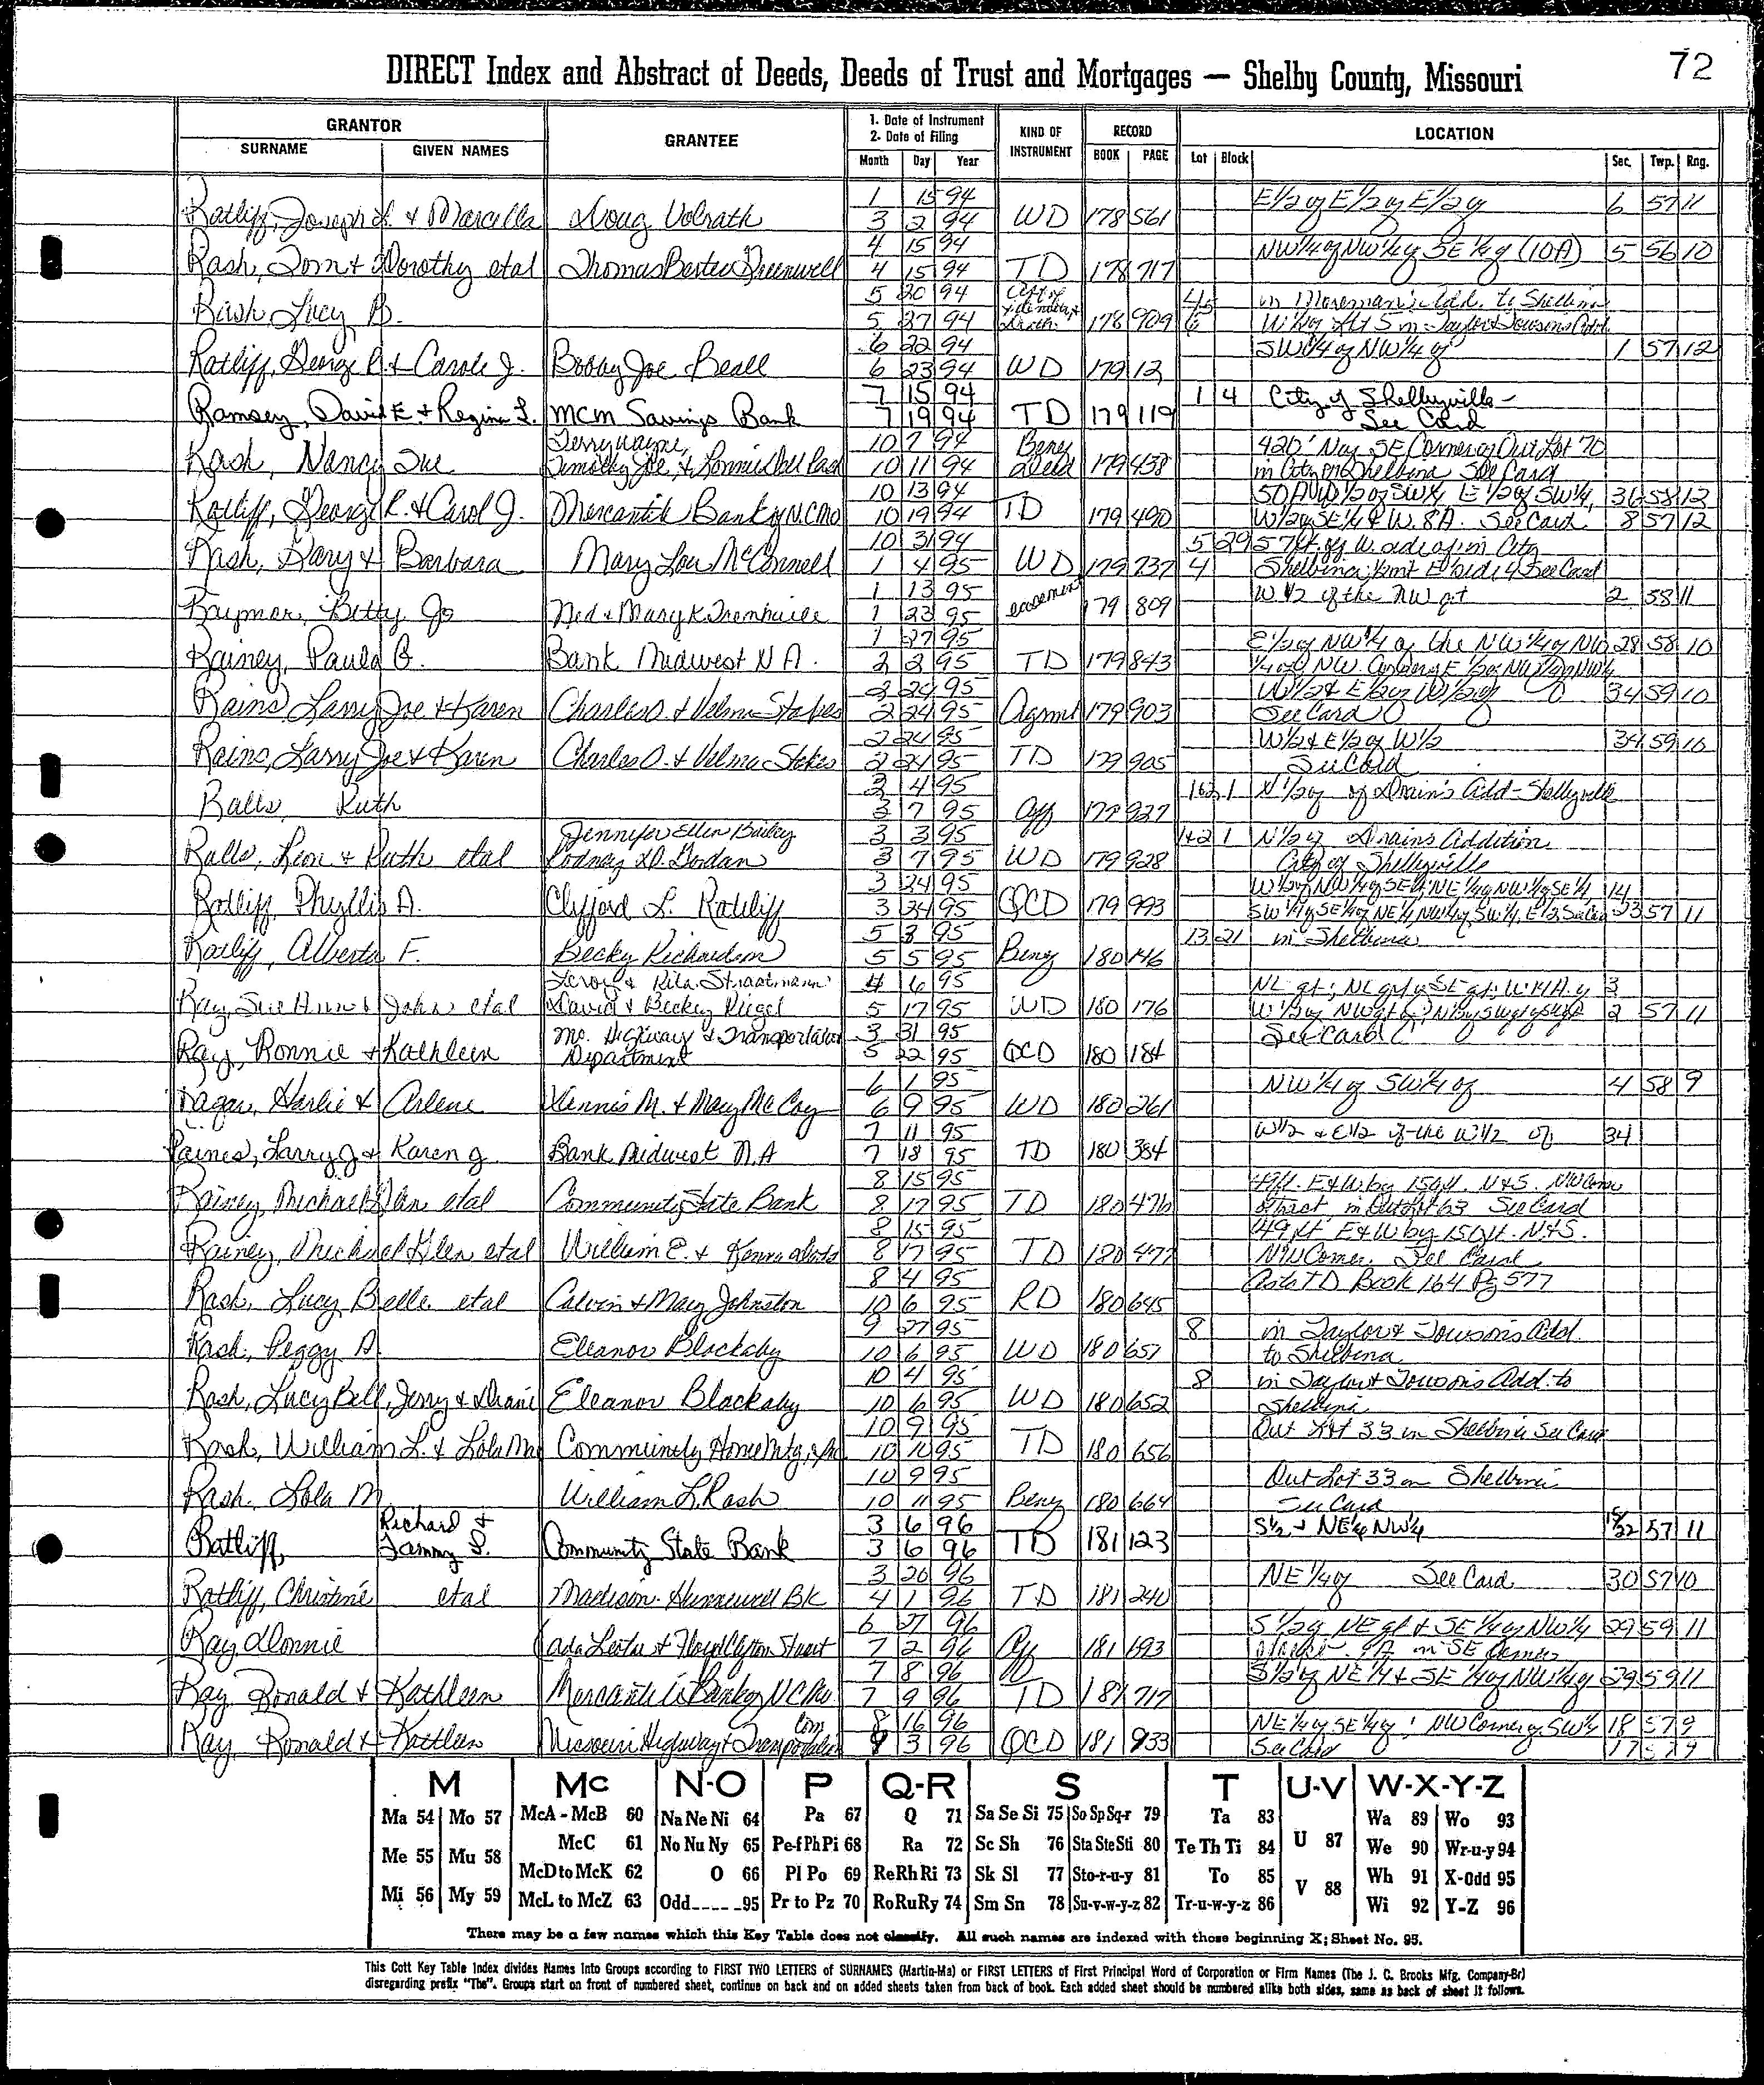 72
DIRECT Index and Abstract of Deeds, Deeds of Trust and Mortgages — Shelby County, Missouri
GRANTOR
SURNAME GIVEN NAMES
GRANTEE
1. Date of Instrument
2. Date of Filing
Month Day Year
KIND OF INSTRUMENT
RECORD
BOOK PAGE
LOCATION
Lot Block Sec. Twp. Rng.
1 15 94 E 1/2 of E 1/2 of E 1/2 of 6 57 11
Ratliff, Joseph L. & Marcella Doug Volrath 3 2 94 WD 178 561
4 15 94 NW 1/4 of NW 1/4 of SE 1/4 of (10A) 5 56 10
Rash, Tom & Dorothy etal Thomas Greenwell 4 15 94 TD 178 717
5 20 94 in Moreman's Add. to Shelbina
Rash, Lucy B. 5 27 94 178 909
6 22 94 SW 1/4 of NW 1/4 of 1 57 12
Ratliff, George R. & Carole J. Bobby Joe Beall 6 23 94 WD 179 12
7 15 94 1 4 City of Shelbyville -
Ramsey, David E & Regina L. MCM Savings Bank 7 19 94 TD 179 119 See Card
Terry Wayne, 10 7 94 Beney 420' N of SE Corner of Out Lot 70
Rash, Nancy Sue Timothy Joe, & 10 11 94 Deed 179 458 in City of Shelbina See Card
10 13 94 E 1/2 of SW 1/4, 36 58 12
Ratliff, George R. & Carol J. Mercantile Bank of N.C. Mo 10 19 94 TD 179 490 W 1/2 of SE 1/4 & W. 8A. See Card 8 57 12
10 3 94 5 29 57 ft of W side of in City
Rash, Gary & Barbara Mary Lou McConnell 1 4 95 WD 179 737 4 Shelbina See Card
1 13 95 W 1/2 of the NW qt 2 58 11
Raymer, Betty Jo Ned & Mary K. 1 23 95 easement 179 809
1 27 95 E 1/2 of NW 1/4 of the NW 1/4 of NW 28 58 10
Rainey, Paula B. Bank Midwest N A. 2 2 95 TD 179 843
2 24 95 W 1/2 & E 1/2 of W 1/2 of 34 59 10
Rains Larry Joe & Karen Charles O. & Velma Stokes 2 24 95 Agmt 179 903 See Card
2 24 95 W 1/2 & E 1/2 of W 1/2 34 59 10
Rains, Larry Joe & Karen Charles O. & Velma Stokes 2 24 95 TD 179 905 See Card
3 4 95 1 N 1/2 of of Drain's Add - Shelbyville
Ralls, Ruth 3 7 95 Aff 179 927
Jennifer Ellen Bailey 3 3 95 1 & 2 1 N 1/2 of Drains Addition
Ralls, Leon & Ruth etal Rodney D. Godan 3 7 95 WD 179 928 City of Shelbyville
3 24 95 W 1/2 of NW 1/4 of SE 1/4; NE 1/4 of NW 1/4 of SE 1/4, 14
Ratliff, Phyllis A. Clifford L. Ratliff 3 24 95 QCD 179 993 SW 1/4 of SE 1/4 of NE 1/4, NW 1/4 of SW 1/4, E 1/2 See Card 23 57 11
5 3 95 13 21 in Shelbina
Ratliff, Alberta F. Becky Richardson 5 5 95 Beny 180 146
Leroy & Rita Straatmann 4 6 95 3
Ray, Sue Ann & John etal David & Becky 5 17 95 WD 180 176 2 57 11
Mo. Highway & Transportation 3 31 95 See Card
Ray, Ronnie & Kathleen Department 5 22 95 QCD 180 184
6 1 95 NW 1/4 of SW 1/4 of 4 58 9
Ragar, Harlie & Arlene Dennis M. & Mary McCoy 6 9 95 WD 180 261
7 11 95 W 1/2 & E 1/2 of the W 1/2 of 34
Raines, Larry J & Karen J Bank Midwest N.A 7 18 95 TD 180 384
8 15 95 49 ft. E & W by 150 ft. N & S. NW Corner
Rainey, Michael Glen etal Community State Bank 8 17 95 TD 180 476 of tract in Outlot 63 See Card
8 15 95 49 ft E & W by 150 ft. N & S.
Rainey, Michael Glen etal William E. & 8 17 95 TD 180 477 NW Corner. See Card
8 4 95 as to TD Book 164 Pg 577
Rash, Lucy Belle etal Calvin & Mary Johnston 10 6 95 RD 180 645
9 27 95 8 in Taylor & Towson's Add.
Rash, Peggy D Eleanor Blackaby 10 6 95 WD 180 651 to Shelbina
10 4 95 8 in Taylor & Towson's Add. to
Rash, Lucy Bell, Jerry & Diane Eleanor Blackaby 10 6 95 WD 180 652 Shelbina
10 9 95 Out Lot 33 in Shelbina See Card
Rash, William L. & Lola Mae Community Home Mtg, 10 11 95 TD 180 656
10 9 95 Out Lot 33 in Shelbina
Rash, Lola M William L. Rash 10 11 95 Beny 180 664 See Card
Richard & 3 6 96 S 1/2 & NE 1/4 NW 1/4 57 11
Ratliff, Tammy S. Community State Bank 3 6 96 TD 181 123
3 20 96 NE 1/4 of See Card 30 57 10
Ratliff, Christine etal Madison-Hunnewell Bk 4 1 96 TD 181 240
6 27 96 S 1/2 of NE qt & SE 1/4 of NW 1/4 29 59 11
Ray Donnie & Floyd Clifton Stuart 7 2 96 Aff 181 693 in SE Corner
7 8 96 S 1/2 of NE 1/4 & SE 1/4 of NW 1/4 of 29 59 11
Ray Ronald & Kathleen Mercantile Bank of N C Mo 7 9 96 TD 181 717
Com 8 16 96 NE 1/4 of SE 1/4 of; NW Corner of SW 1/4 18 57 9
Ray Ronald & Kathleen Missouri Highway & Transportation 9 3 96 QCD 181 933 See Card 17 57 9
M Mc N-O P Q-R S T U-V W-X-Y-Z
Ma 54 Mo 57 McA - McB 60 Na Ne Ni 64 Pa 67 Q 71 Sa Se Si 75 So Sp Sq-r 79 Ta 83 Wa 89 Wo 93
McC 61 No Nu Ny 65 Pe-f Ph Pi 68 Ra 72 Sc Sh 76 Sta Ste Sti 80 Te Th Ti 84 U 87 We 90 Wr-u-y 94
Me 55 Mu 58 McD to McK 62 O 66 Pl Po 69 Re Rh Ri 73 Sk Sl 77 Sto-r-u-y 81 To 85 Wh 91 X-Odd 95
Mi 56 My 59 McL to McZ 63 Odd 95 Pr to Pz 70 Ro Ru Ry 74 Sm Sn 78 Su-v-w-y-z 82 Tr-u-w-y-z 86 V 88 Wi 92 Y-Z 96
There may be a few names which this Key Table does not classify. All such names are indexed with those beginning X; Sheet No. 95.
This Cott Key Table Index divides Names Into Groups according to FIRST TWO LETTERS of SURNAMES (Martin-Ma) or FIRST LETTERS of First Principal Word of Corporation or Firm Names (The J. C. Brooks Mfg. Company-Br)
disregarding prefix "The". Groups start on front of numbered sheet, continue on back and on added sheets taken from back of book. Each added sheet should be numbered alike both sides, same as back of sheet it follows.